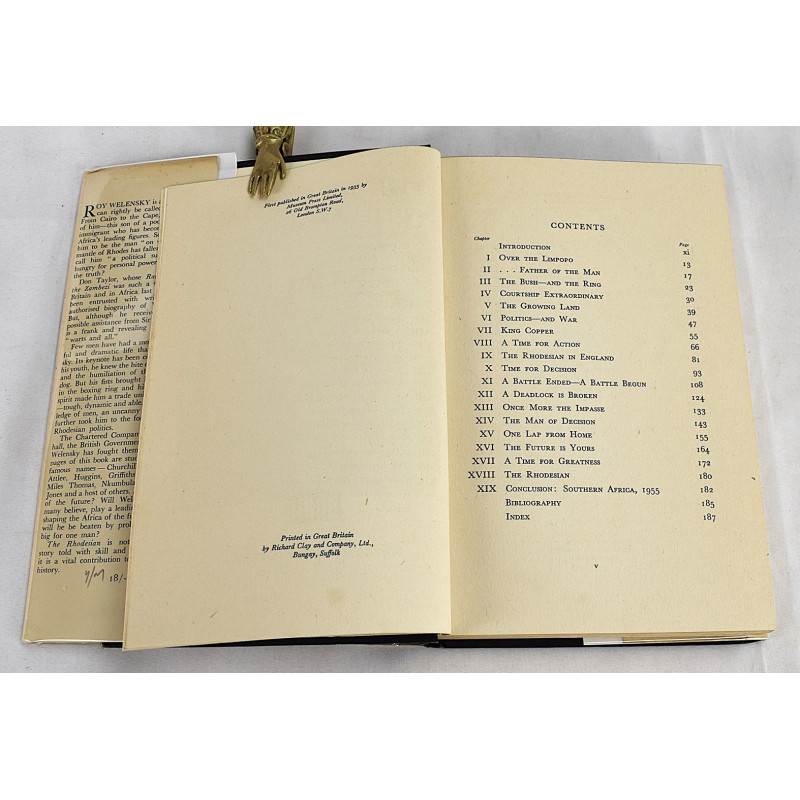 ROY WELENSKY is a
can rightly be called
From Cairo to the Cape,
of him—this son of a poo
immigrant who has becom
Africa's leading figures. So
him to be the man "on w
mantle of Rhodes has fallen
call him "a political su
hungry for personal power
the truth?
Don Taylor, whose Ra
the Zambezi was such a
Britain and in Africa last
been entrusted with wri
authorised biography of
But, although he receive
possible assistance from Sir
is a frank and revealing
"warts and all."
Few men have had a mo
ful and dramatic life tha
sky. Its keynote has been c
his youth, he knew the bite
and the humiliation of th
dog. But his fists brought
in the boxing ring and hi
spirit made him a trade uni
—tough, dynamic and able
ledge of men, an uncanny
further took him to the fo
Rhodesian politics.
The Chartered Compan
hall, the British Governmen
Welensky has fought them
pages of this book are stud
famous names—Churchill
Attlee, Huggins, Griffiths
Miles Thomas, Nkumbula
Jones and a host of others.
of the future? Will Wel
many believe, play a leadin
shaping the Africa of the fu
will he be beaten by prob
big for one man?
The Rhodesian is not
story told with skill and
it is a vital contribution to
history.
18/-
First published in Great Britain in 1955 by
Museum Press Limited,
26 Old Brompton Road,
London S.W.7
Printed in Great Britain
by Richard Clay and Company, Ltd.,
Bungay, Suffolk
CONTENTS
Chapter Page
Introduction xi
I Over the Limpopo 13
II . . . Father of the Man 17
III The Bush—and the Ring 23
IV Courtship Extraordinary 30
V The Growing Land 39
VI Politics—and War 47
VII King Copper 55
VIII A Time for Action 66
IX The Rhodesian in England 81
X Time for Decision 93
XI A Battle Ended—A Battle Begun 108
XII A Deadlock is Broken 124
XIII Once More the Impasse 133
XIV The Man of Decision 143
XV One Lap from Home 155
XVI The Future is Yours 164
XVII A Time for Greatness 172
XVIII The Rhodesian 180
XIX Conclusion: Southern Africa, 1955 182
Bibliography 185
Index 187
v